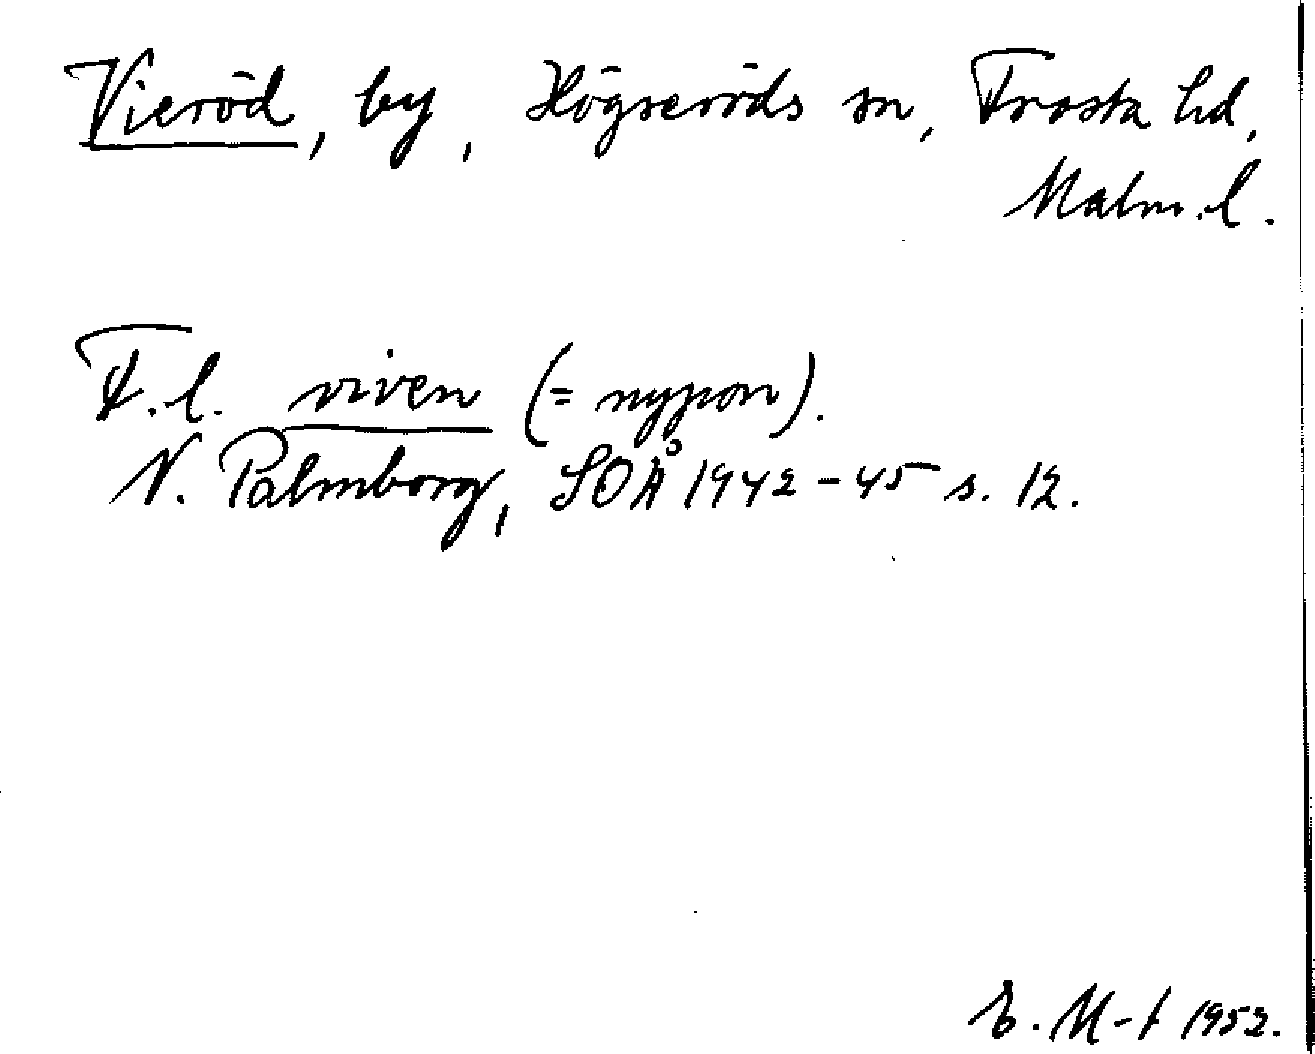 Vieröd, by, Högseröds sn, Frosta hd,
Malm. l.
F. l. viven (= nypon).
N. Palmborg, SOÅ 1942-45 s. 12.
E. M-t 1952.